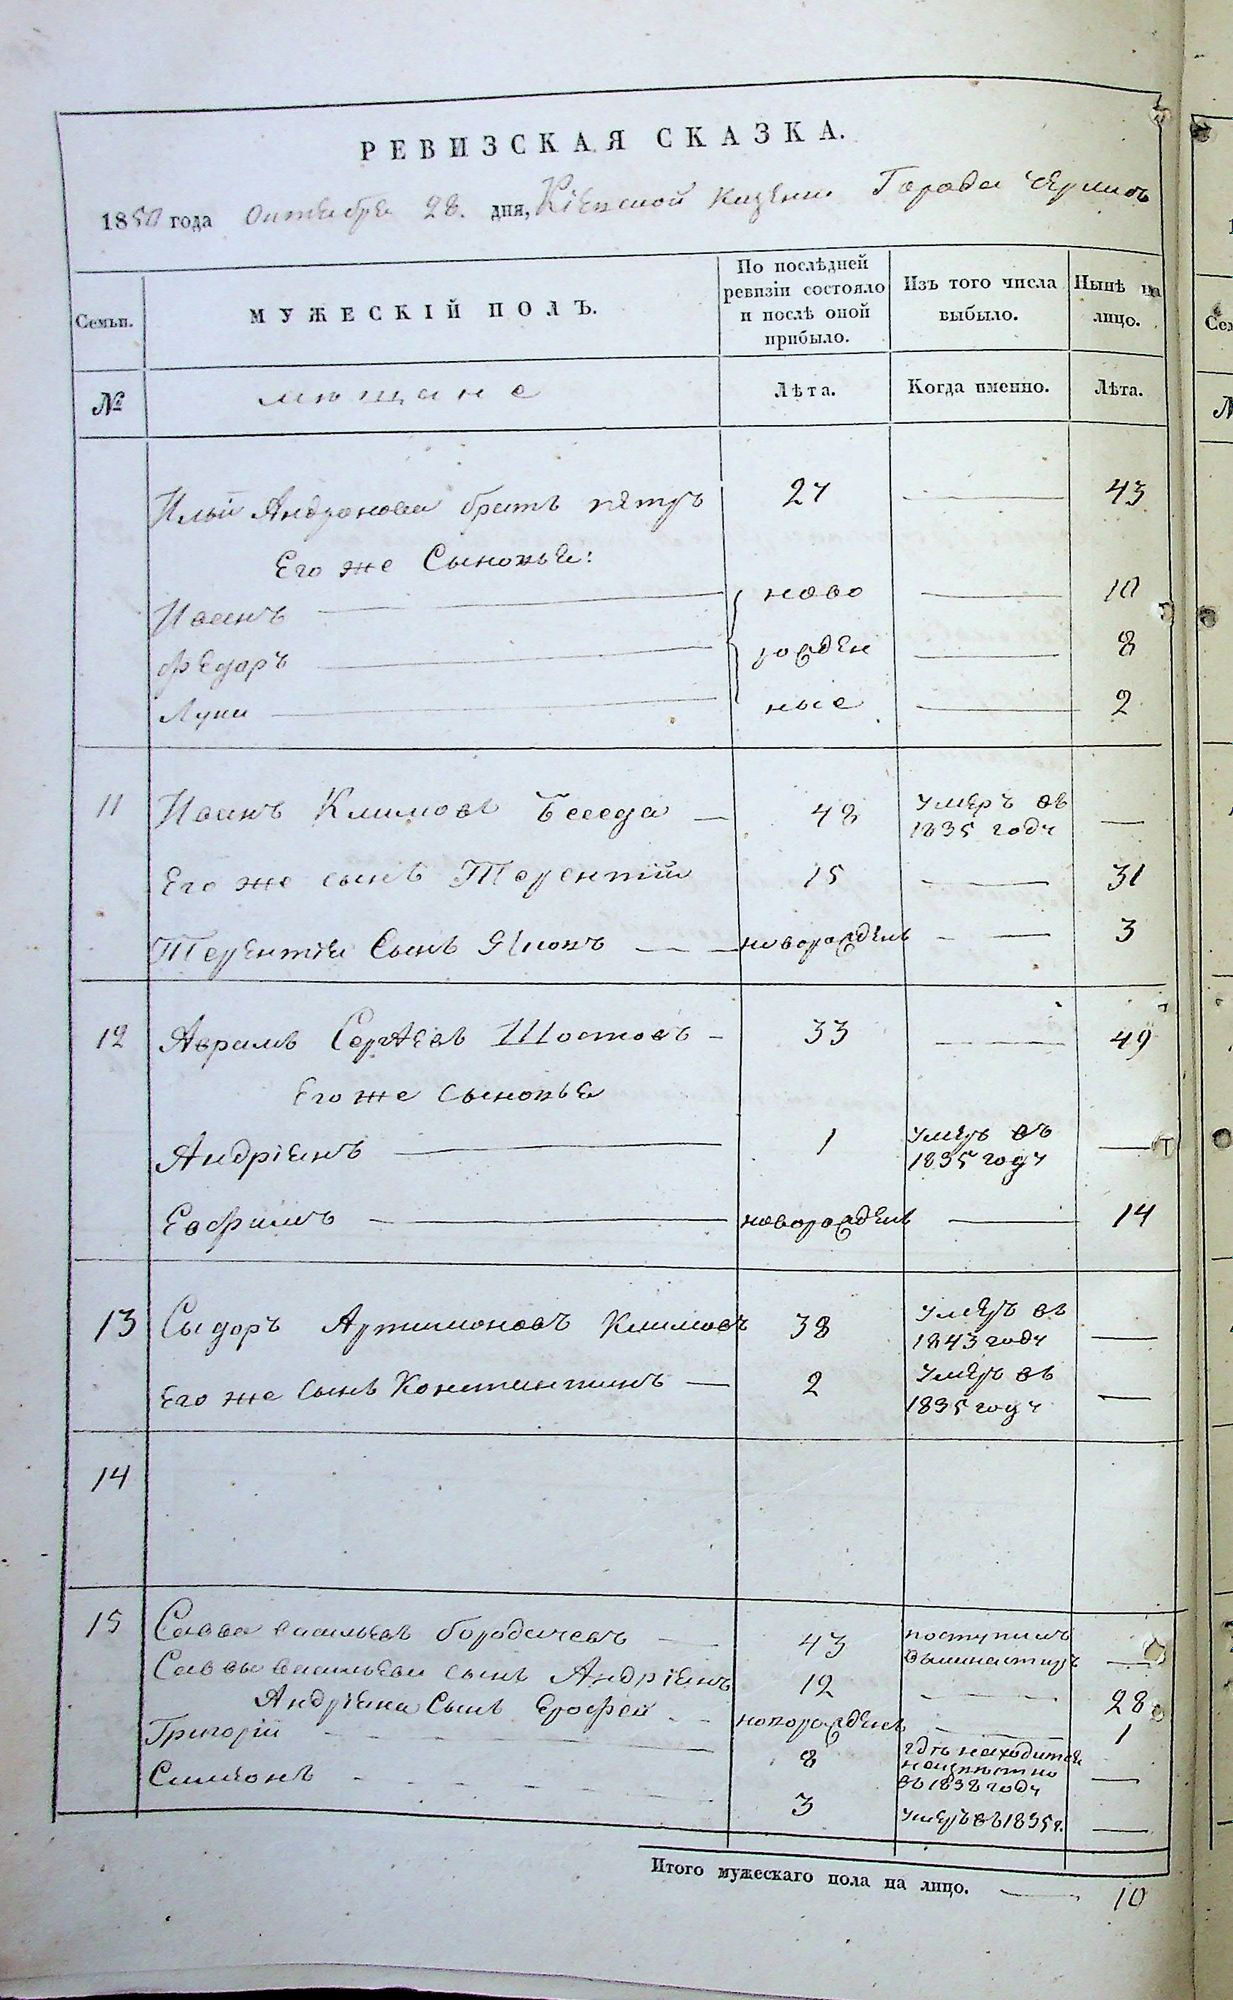 РЕВИЗСКАЯ СКАЗКА.
1850 года Октября 28. дня, Кіевской Губерніи Города
Семьи. МУЖЕСКІЙ ПОЛЪ. По послѣдней ревизіи состояло и послѣ оной прибыло. Изъ того числа выбыло. Нынѣ на лицо.
№ мѣщане Лѣта. Когда именно. Лѣта.
Ильи Андронова братъ Петръ 27 — 43
Его же Сыновья:
Иванъ — ново — 10
Федоръ — рожден — 8
Луки — ные — 2
11 Иванъ Климовъ Беседа — 48 умеръ въ 1835 году —
Его же сынъ Терентій 15 — 31
Терентія Сынъ — новорожденъ — 3
12 Аврамъ Сергѣевъ Шостовъ — 33 — 49
Его же сыновья
Андріянъ — 1 умеръ въ 1835 году —
Евфимъ — новорожденъ — 14
13 Сыдоръ Артимоновъ Климовъ 38 умеръ въ 1843 году —
Его же сынъ Константинъ — 2 умеръ въ 1835 году —
14
15 Савва васильевъ бородачевъ — 43 поступилъ —
Саввы васильева сынъ Андріянъ 12 — 28
Андріяна Сынъ Ерофей — новорожденъ — 1
Григорій — 8 гдѣ находится неизвѣстно въ 1838 году —
Симіонъ — 3 умеръ въ 1835 г. —
Итого мужескаго пола на лицо. — 10